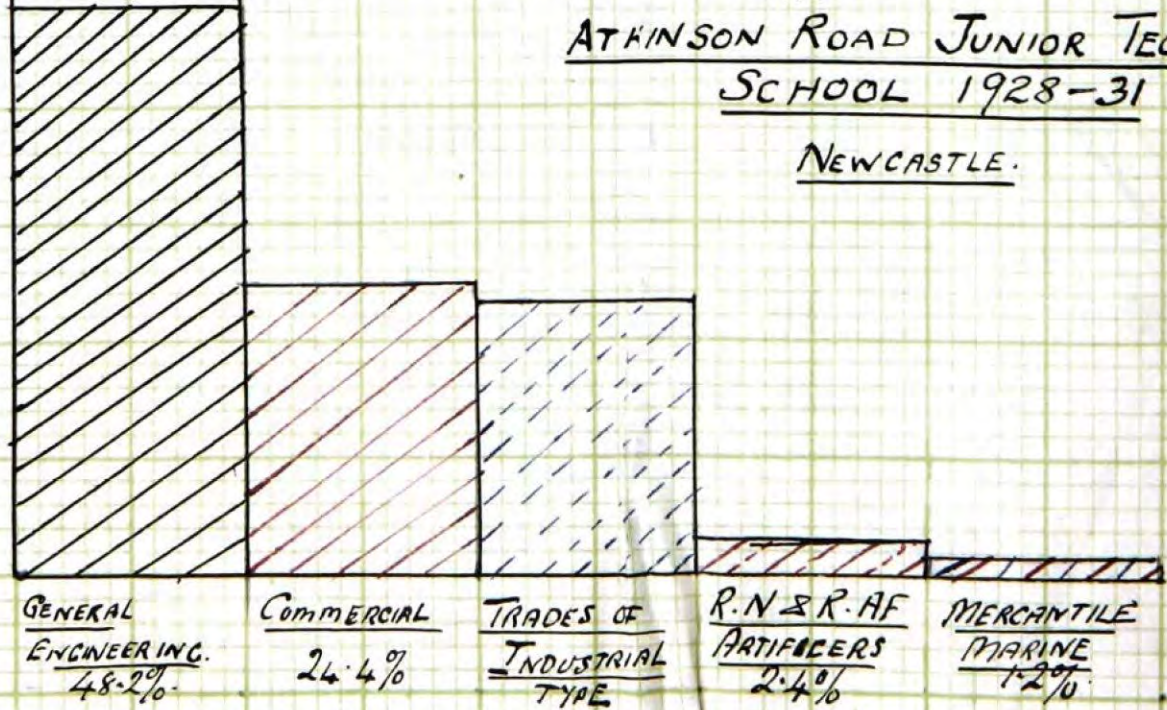 ATKINSON ROAD JUNIOR TEC
SCHOOL 1928-31
NEWCASTLE.
GENERAL
ENGINEERING.
48.2%.
COMMERCIAL
24.4%
TRADES OF
INDUSTRIAL
TYPE
R.N & R.AF
ARTIFICERS
2.4%
MERCANTILE
MARINE
1.2%